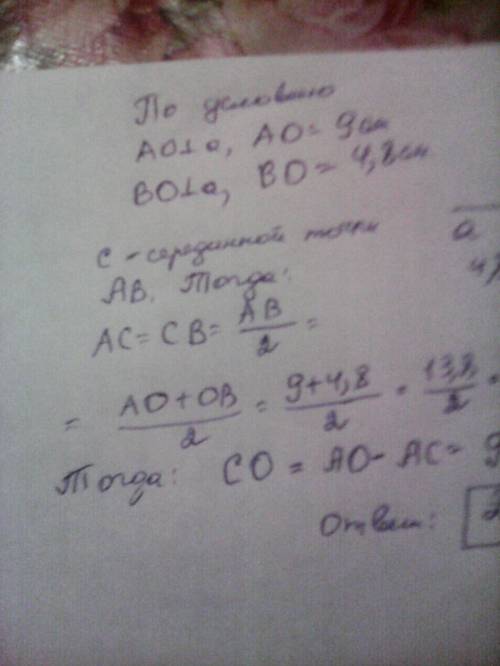 По условию
AO⊥a, AO = 9 см
BO⊥a, BO = 4,8 см
a
C - серединной точки
AB. Тогда:
AC = CB = AB/2 =
= AO+OB/2 = 9+4,8/2 = 13,8/2 =
Тогда: CO = AO - AC = 9
Ответ: 2